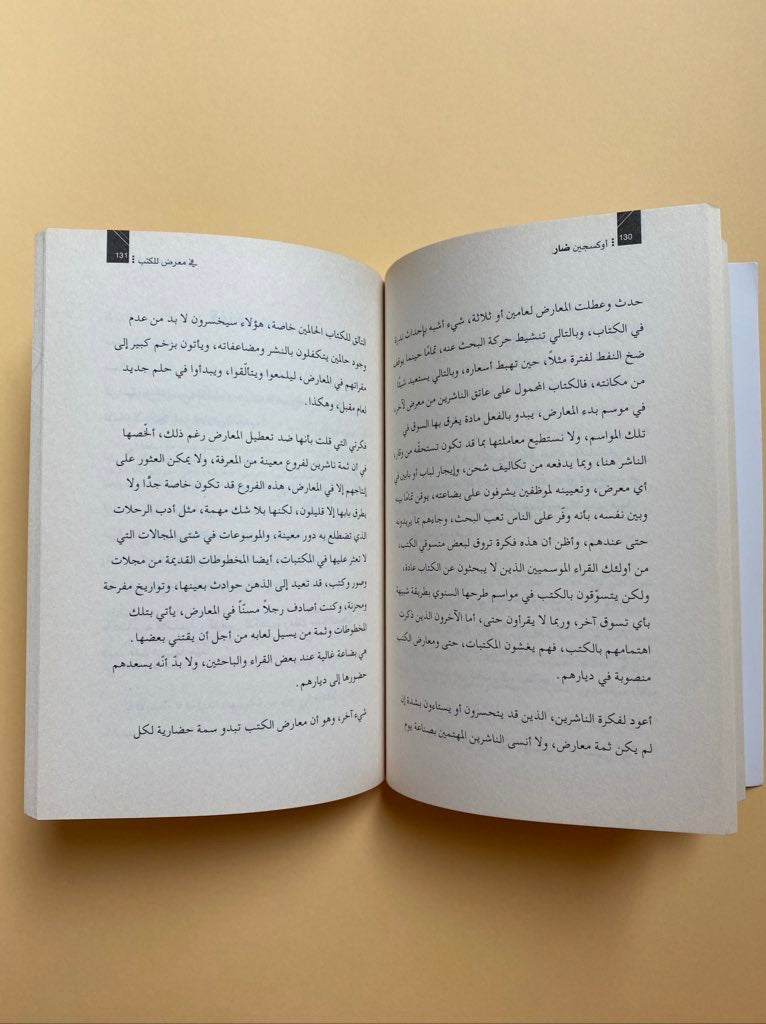 130
أوكسجين ضار
حدث وعطلت المعارض لعامين أو ثلاثة، شيء أشبه بإحداث ندرة
في الكتاب، وبالتالي تنشيط حركة البحث عنه، تمامًا حينما يوقف
ضخ النفط لفترة مثلاً، حين تهبط أسعاره، وبالتالي يستعيد شيئًا
من مكانته، فالكتاب المحمول على عاتق الناشرين من معرض لآخر
في موسم بدء المعارض، يبدو بالفعل مادة يغرق بها السوق في
تلك المواسم، ولا نستطيع معاملتها بما قد تكون تستحقّه من وقار،
الناشر هنا، وبما يدفعه من تكاليف شحن، وإيجار لباب أو بابين في
أي معرض، وتعيينه لموظفين يشرفون على بضاعته، يوقن تمامًا بينه
وبين نفسه، بأنه وفّر على الناس تعب البحث، وجاءهم بما يريدونه
حتى عندهم، وأظن أن هذه فكرة تروق لبعض متسوقي الكتب،
من أولئك القراء الموسميين الذين لا يبحثون عن الكتاب عادة،
ولكن يتسوّقون بالكتب في مواسم طرحها السنوي بطريقة شبيهة
بأي تسوق آخر، وربما لا يقرأون حتى، أما الآخرون الذين ذكرت
اهتمامهم بالكتب، فهم يغشون المكتبات، حتى ومعارض الكتب
منصوبة في ديارهم.
أعود لفكرة الناشرين، الذين قد يتحسرون أو يستاءون بشدة إن
لم يكن ثمة معارض، ولا أنسى الناشرين المهتمين بصناعة يوم
131
في معرض للكتب
التألق للكتاب الحالمين خاصة، هؤلاء سيخسرون لا بد من عدم
وجود حالمين يتكفلون بالنشر ومضاعفاته، ويأتون بزخم كبير إلى
مقراتهم في المعارض، ليلمعوا ويتألّقوا، ويبدأوا في حلم جديد
لعام مقبل، وهكذا.
فكرتي التي قلت بأنها ضد تعطيل المعارض رغم ذلك، ألخّصها
في أن ثمة ناشرين لفروع معينة من المعرفة، ولا يمكن العثور على
إنتاجهم إلا في المعارض، هذه الفروع قد تكون خاصة جدًّا ولا
يطرق بابها إلا قليلون، لكنها بلا شك مهمة، مثل أدب الرحلات
الذي تضطلع به دور معينة، والموسوعات في شتى المجالات التي
لا نعثر عليها في المكتبات، أيضا المخطوطات القديمة من مجلات
وصور وكتب، قد تعيد إلى الذهن حوادث بعينها، وتواريخ مفرحة
ومحزنة، وكنت أصادف رجلاً مسنّاً في المعارض، يأتي بتلك
المخطوطات وثمة من يسيل لعابه من أجل أن يقتني بعضها.
هي بضاعة غالية عند بعض القراء والباحثين، ولا بدّ أنّه يسعدهم
حضورها إلى ديارهم.
شيء آخر، وهو أن معارض الكتب تبدو سمة حضارية لكل